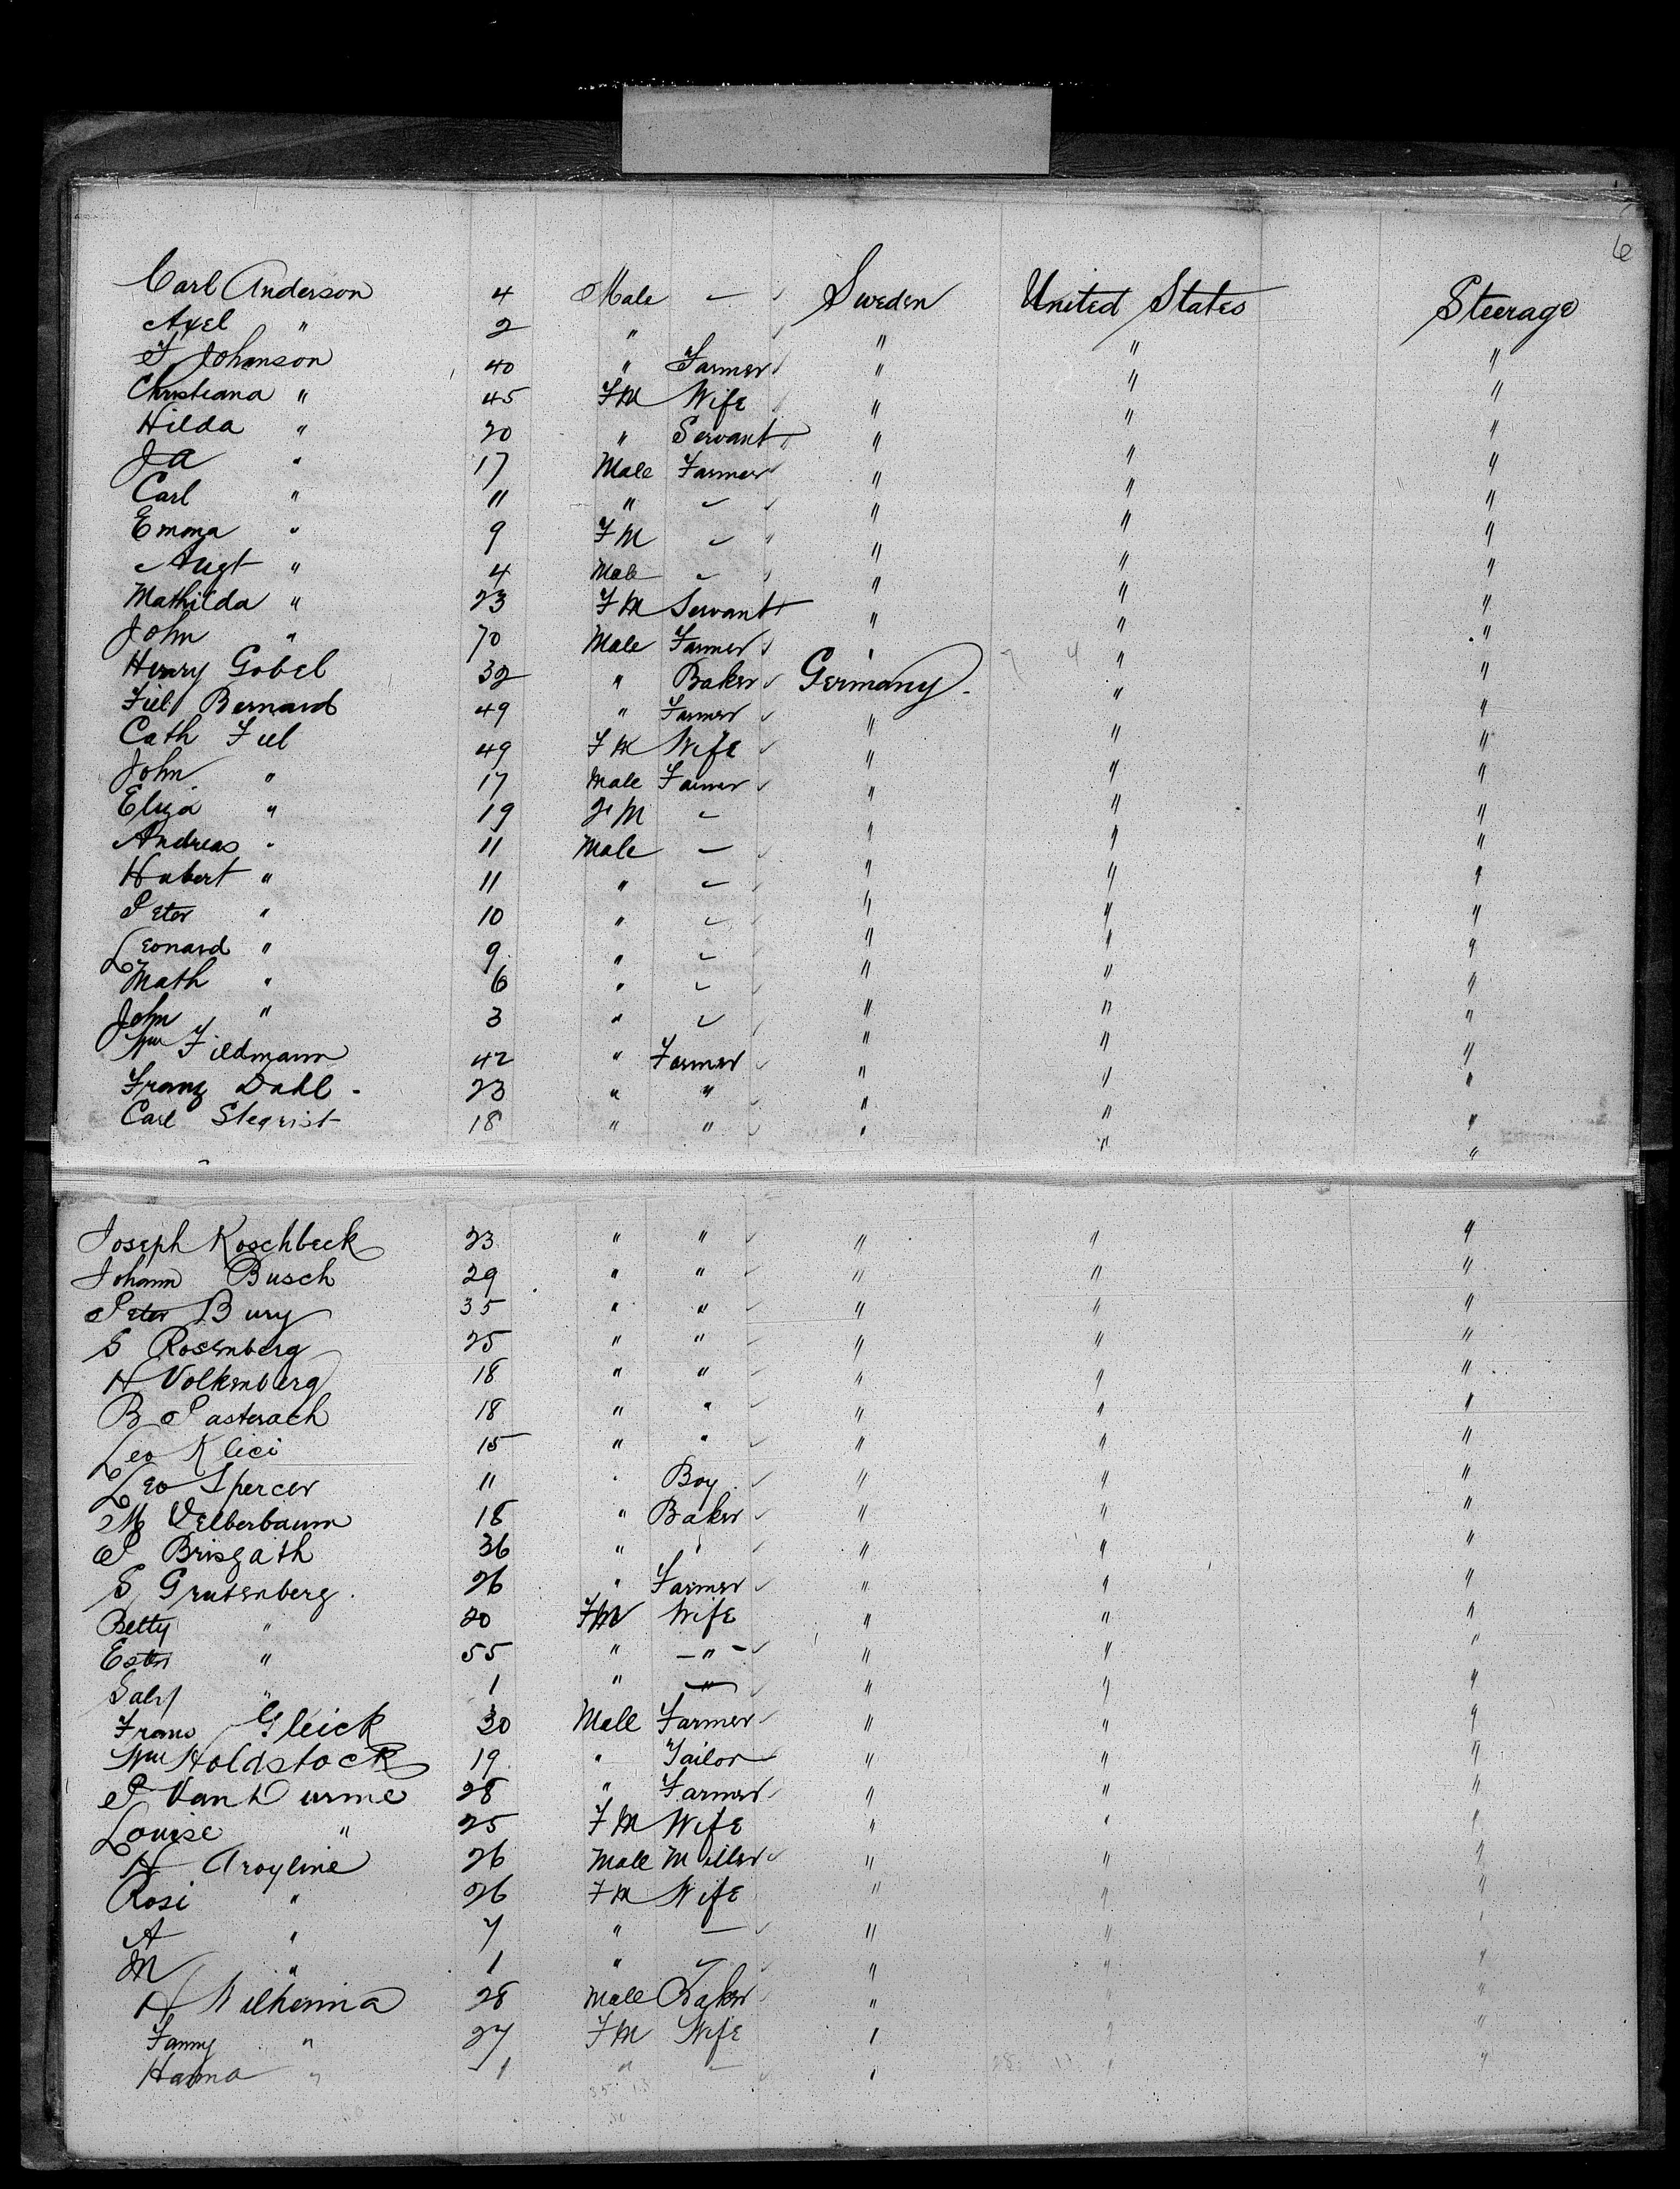 6
Carl Anderson 4 Male — Sweden United States Steerage
Axel " 2 " " " "
F Johanson 40 " Farmer " " "
Christiana " 45 FM Wife " " "
Hilda " 20 " Servant " " "
J A " 17 Male Farmer " " "
Carl " 11 " — " " "
Emma " 9 FM — " " "
Augt " 4 Male — " " "
Mathilda " 23 FM Servant " " "
John " 70 Male Farmer " " "
Henry Gobel 32 " Baker Germany " "
Fiel Bernard 49 " Farmer " " "
Cath Fiel 49 FM Wife " " "
John " 17 Male Farmer " " "
Eliza " 19 FM — " " "
Andreas " 11 Male — " " "
Hubert " 11 " — " " "
Peter " 10 " — " " "
Leonard " 9 " — " " "
Math " 6 " — " " "
John " 3 " — " " "
Wm Fieldmann 42 " Farmer " " "
Franz Dahl 23 " " " " "
Carl Stegrist 18 " " " " "
Joseph Koschbeck 23 " " " " "
Johann Busch 29 " " " " "
Peter Bury 35 " " " " "
S Rosenberg 25 " " " " "
H Volkenberg 18 " " " " "
B Pasterach 18 " " " " "
Leo Klici 15 " " " " "
Leo Spercer 11 " Boy " " "
M Velberbaum 18 " Baker " " "
P Brisgath 36 " " " " "
S Grutenberg 26 " Farmer " " "
Betty " 20 FM Wife " " "
Ester " 55 " — " — " " "
Saly " 1 " — " " "
Frans Gleick 30 Male Farmer " " "
Wm Holdstock 19 " Tailor " " "
P Van Durme 28 " Farmer " " "
Louise " 25 FM Wife " " "
H Aroyline 26 Male Miller " " "
Rosi " 26 FM Wife " "
A " 7 " — " " "
M " 1 " — " " "
H Wilhemina 28 Male Baker " " "
Fanny " 27 FM Wife " " "
Hanna " 1 " — " " "